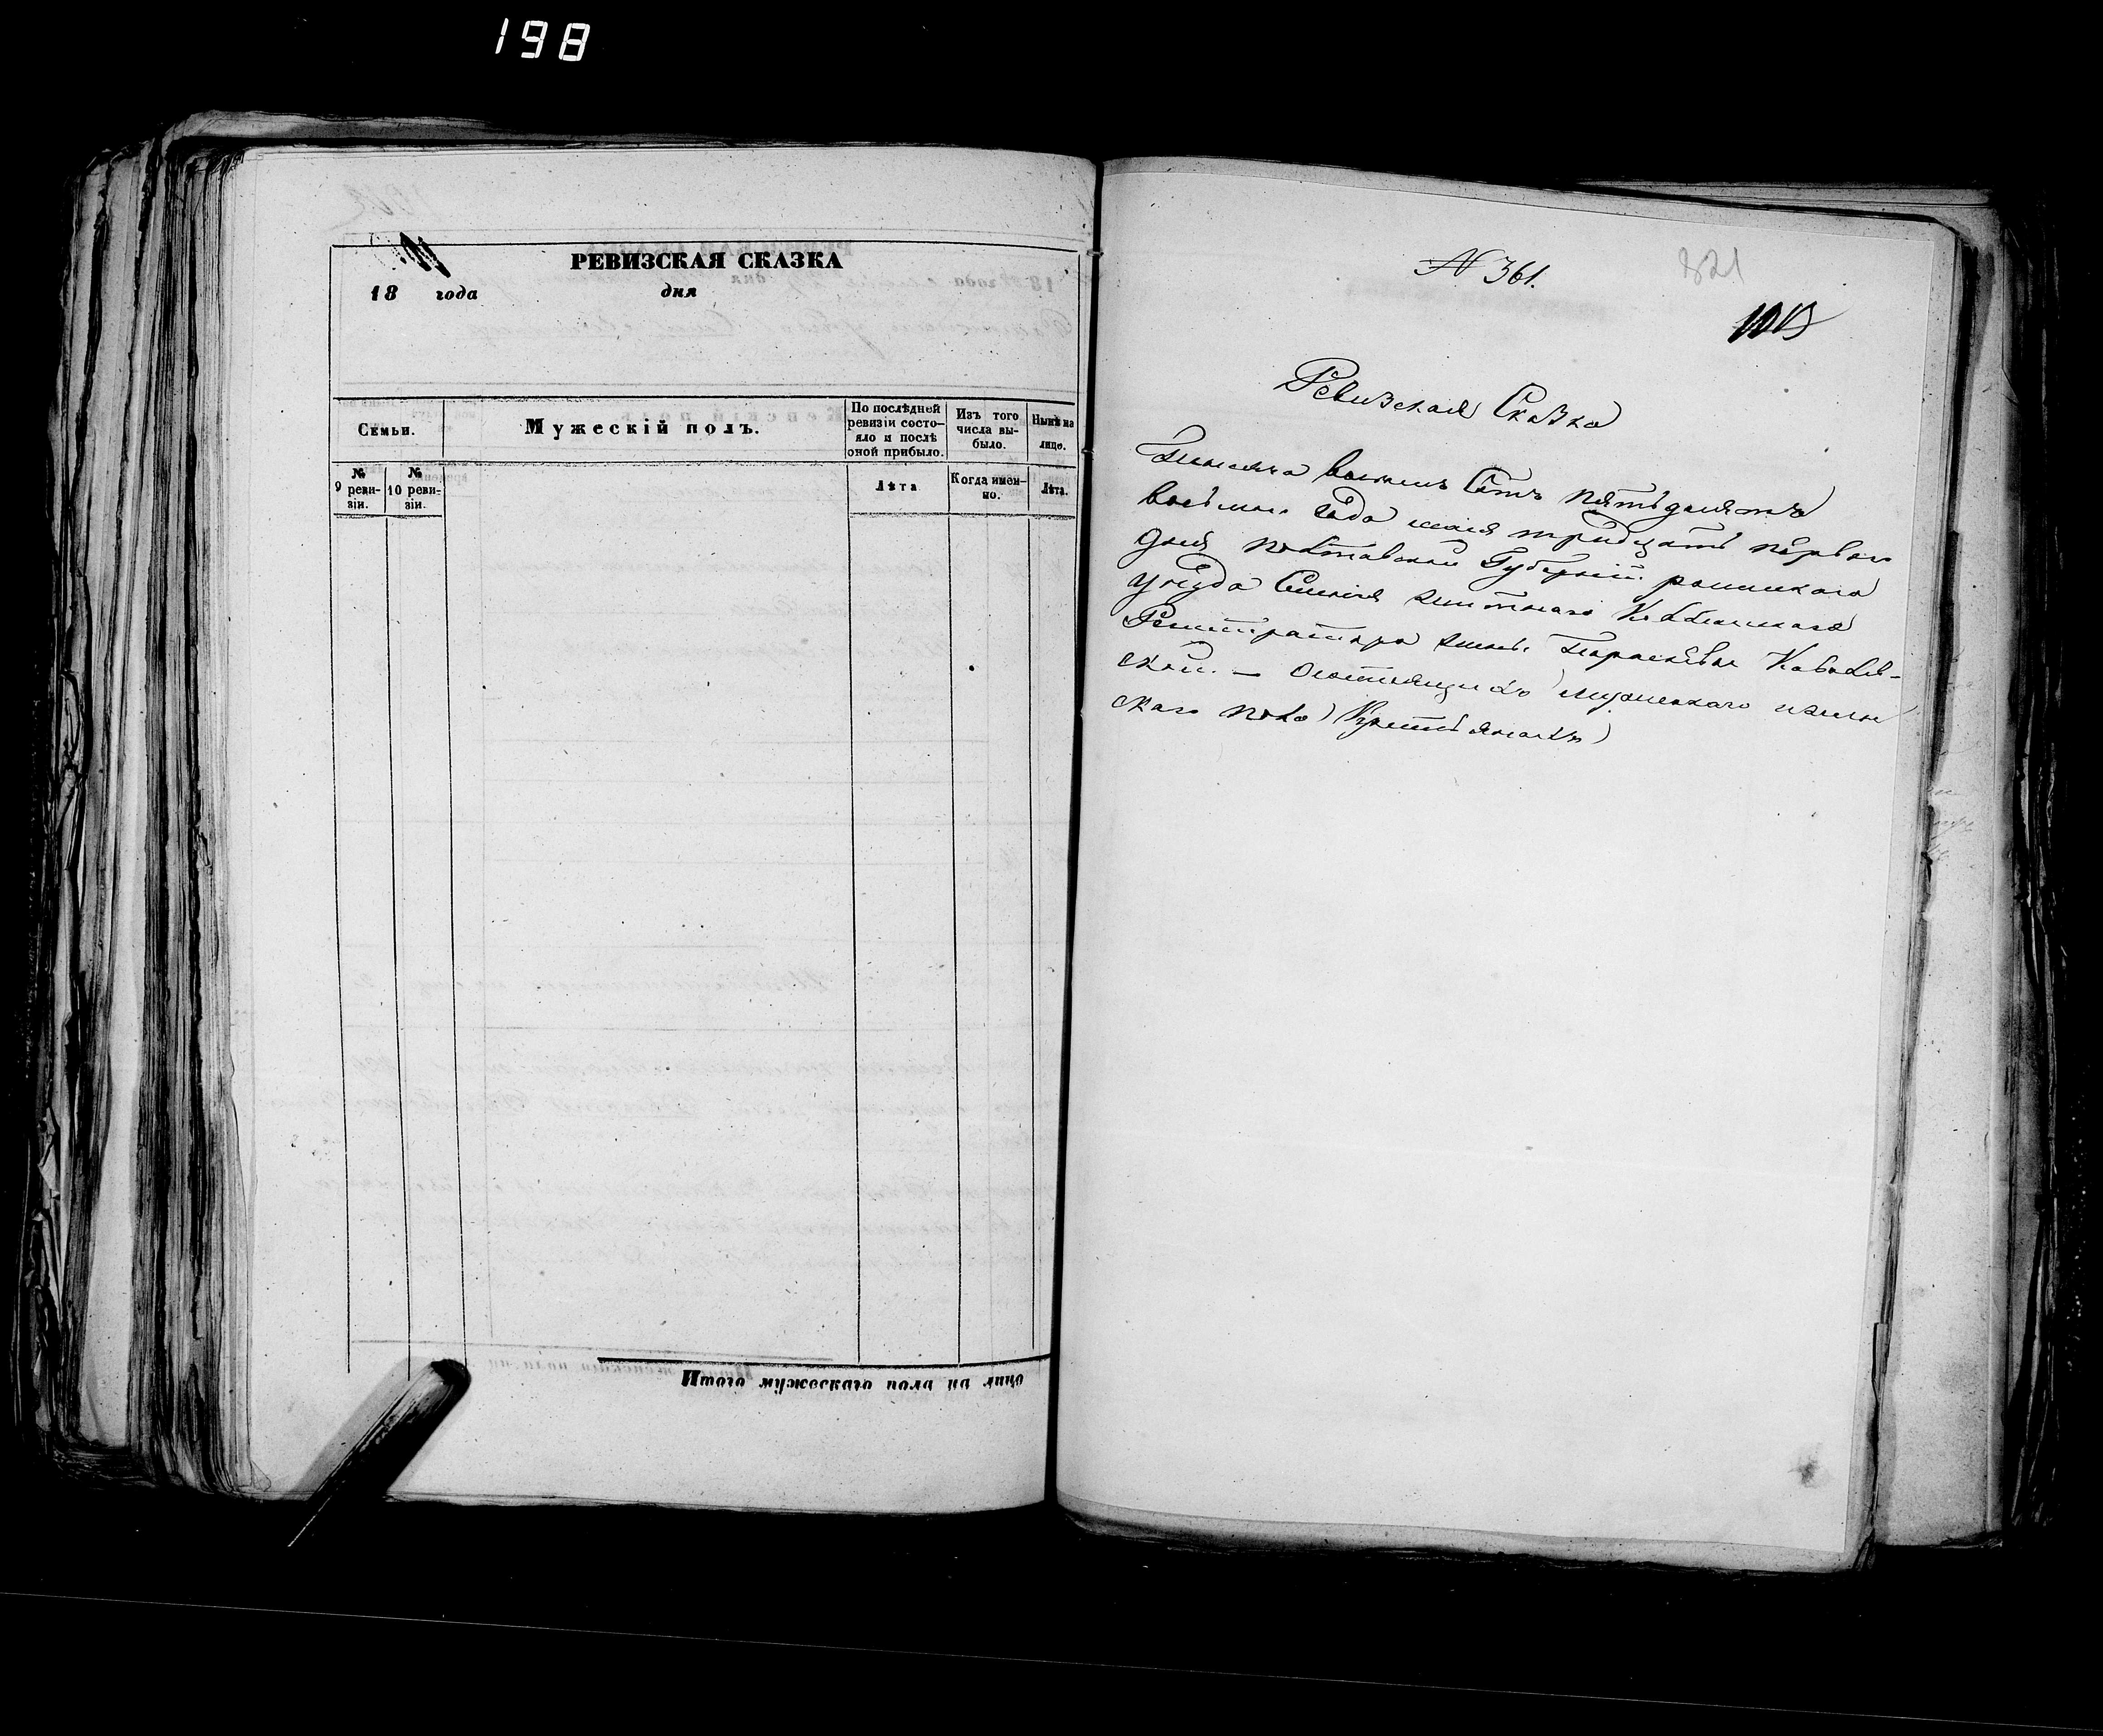 198
РЕВИЗСКАЯ СКАЗКА
18 года дня
Семьи.
Мужескій полъ.
По послѣдней ревизіи состояло и послѣ оной прибыло.
Изъ того числа выбыло.
Нынѣ на лицо.
№ 9 ревизіи.
№ 10 ревизіи.
Лѣта
Когда именно.
Лѣта.
Итого мужескаго пола на лицо
№ 361.
821
Ревизская Сказка
Тысяча восемь Сотъ пятьдесятъ
восьмаго Года мая тридцать перваго
дня Полтавской Губерніи роменскаго
уезда Селенія Коллежскаго
Регистратора жены Парасковіи Ковалев-
ской — о состоящихъ мужескаго и жен
скаго пола Крестьянахъ